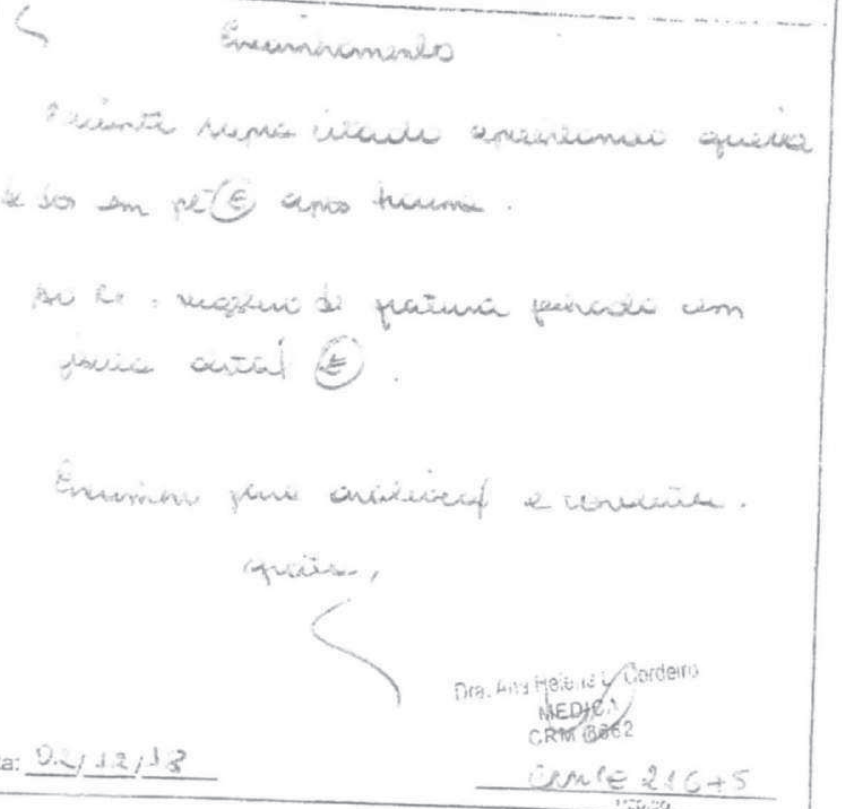 Encaminhamento
Paciente supra citado apresentando queixa
de dor em pé (E) após trauma.
Ao Rx: de fratura fechada em
distal (E).
Encaminho para e conduta.
Grata,
Dra. Ana Helena L. Cordeiro
MEDICA
CRM
ta: 02/12/18